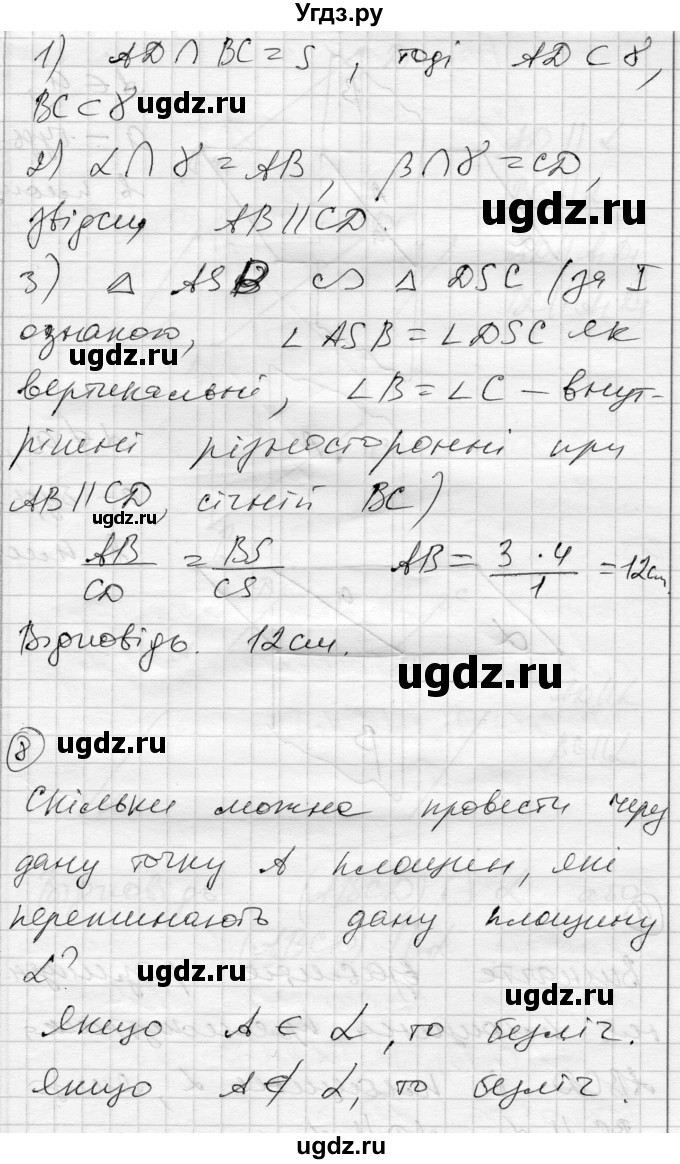 Угдз.ру
1) AD ∩ BC = S, тоді AD ⊂ γ,
BC ⊂ γ
ugdz.ru
2) α ∩ γ = AB, β ∩ γ = CD,
ugdz.ru
звідси, AB || CD.
3) Δ ASB ∽ Δ DSC (за I
ознакою, ∠ASB = ∠DSC як
ugdz.ru
вертикальні, ∠B = ∠C – внут-
рішні різносторонні при
AB || CD, січній BC)
ugdz.ru
AB/CD = BS/CS AB = 3·4/1 = 12см.
Відповідь. 12см.
ugdz.ru
8 ugdz.ru
Скільки можна провести через
дану точку A площин, які
перетинають дану площину
α?
ugdz.ru
Якщо A ∈ α, то безліч.
Якщо, A ∉ α, то безліч.
ugdz.ru
ugdz.ru